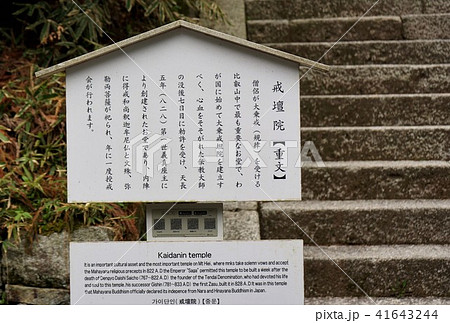 戒壇院【重文】
僧侶が大乗戒（規律）を受ける
比叡山中で最も重要なお堂で、わ
が国に始めて大乗戒壇院を建立す
べく、心血をそそがれた伝教大師
の没後七日目に勅許を受け、天長
五年（八二八）第一世義真座主に
より創建されたお堂であり、内陣
に得戒和尚釈迦牟尼仏と文殊、弥
勒両菩薩が祀られ、年に一度授戒
会が行われます。
Kaidanin temple
It is an important cultural asset and the most important temple on Mt Hiei, where minks take solemn vows and accept
the Mahayana religious precepts in 822 A.D the Emperor "Saga" permitted this temple to be built a week after the
death of Denpyo Daishi Saicho (767-822 A.D) the founder of the Tendai Denomination, who had devoted his life
and soul to this temple, his successor Gishin (781-833 A.D) the first Zasu, built it 828 A.D. It was in this temple
that Mahayana Buddhism officially declared its indepence from Nara and Hinayana Buddhism in Japan.
가이단인 (戒壇院) [중문]
41643244